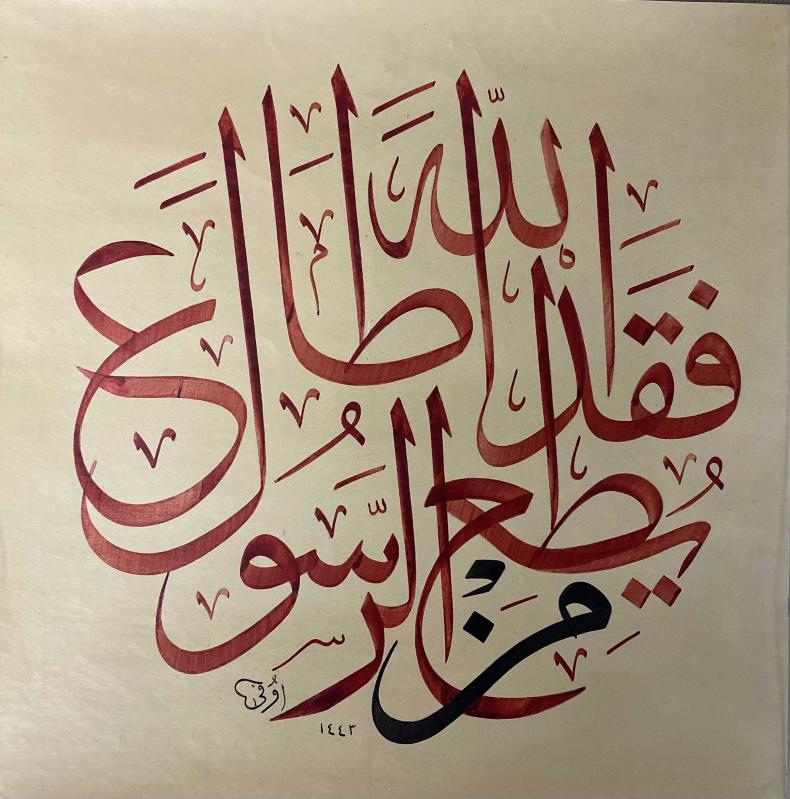 مَنْ يُطِعِ الرَّسُولَ فَقَدْ اَطَاعَ اللّٰهَ
١٤٤٣